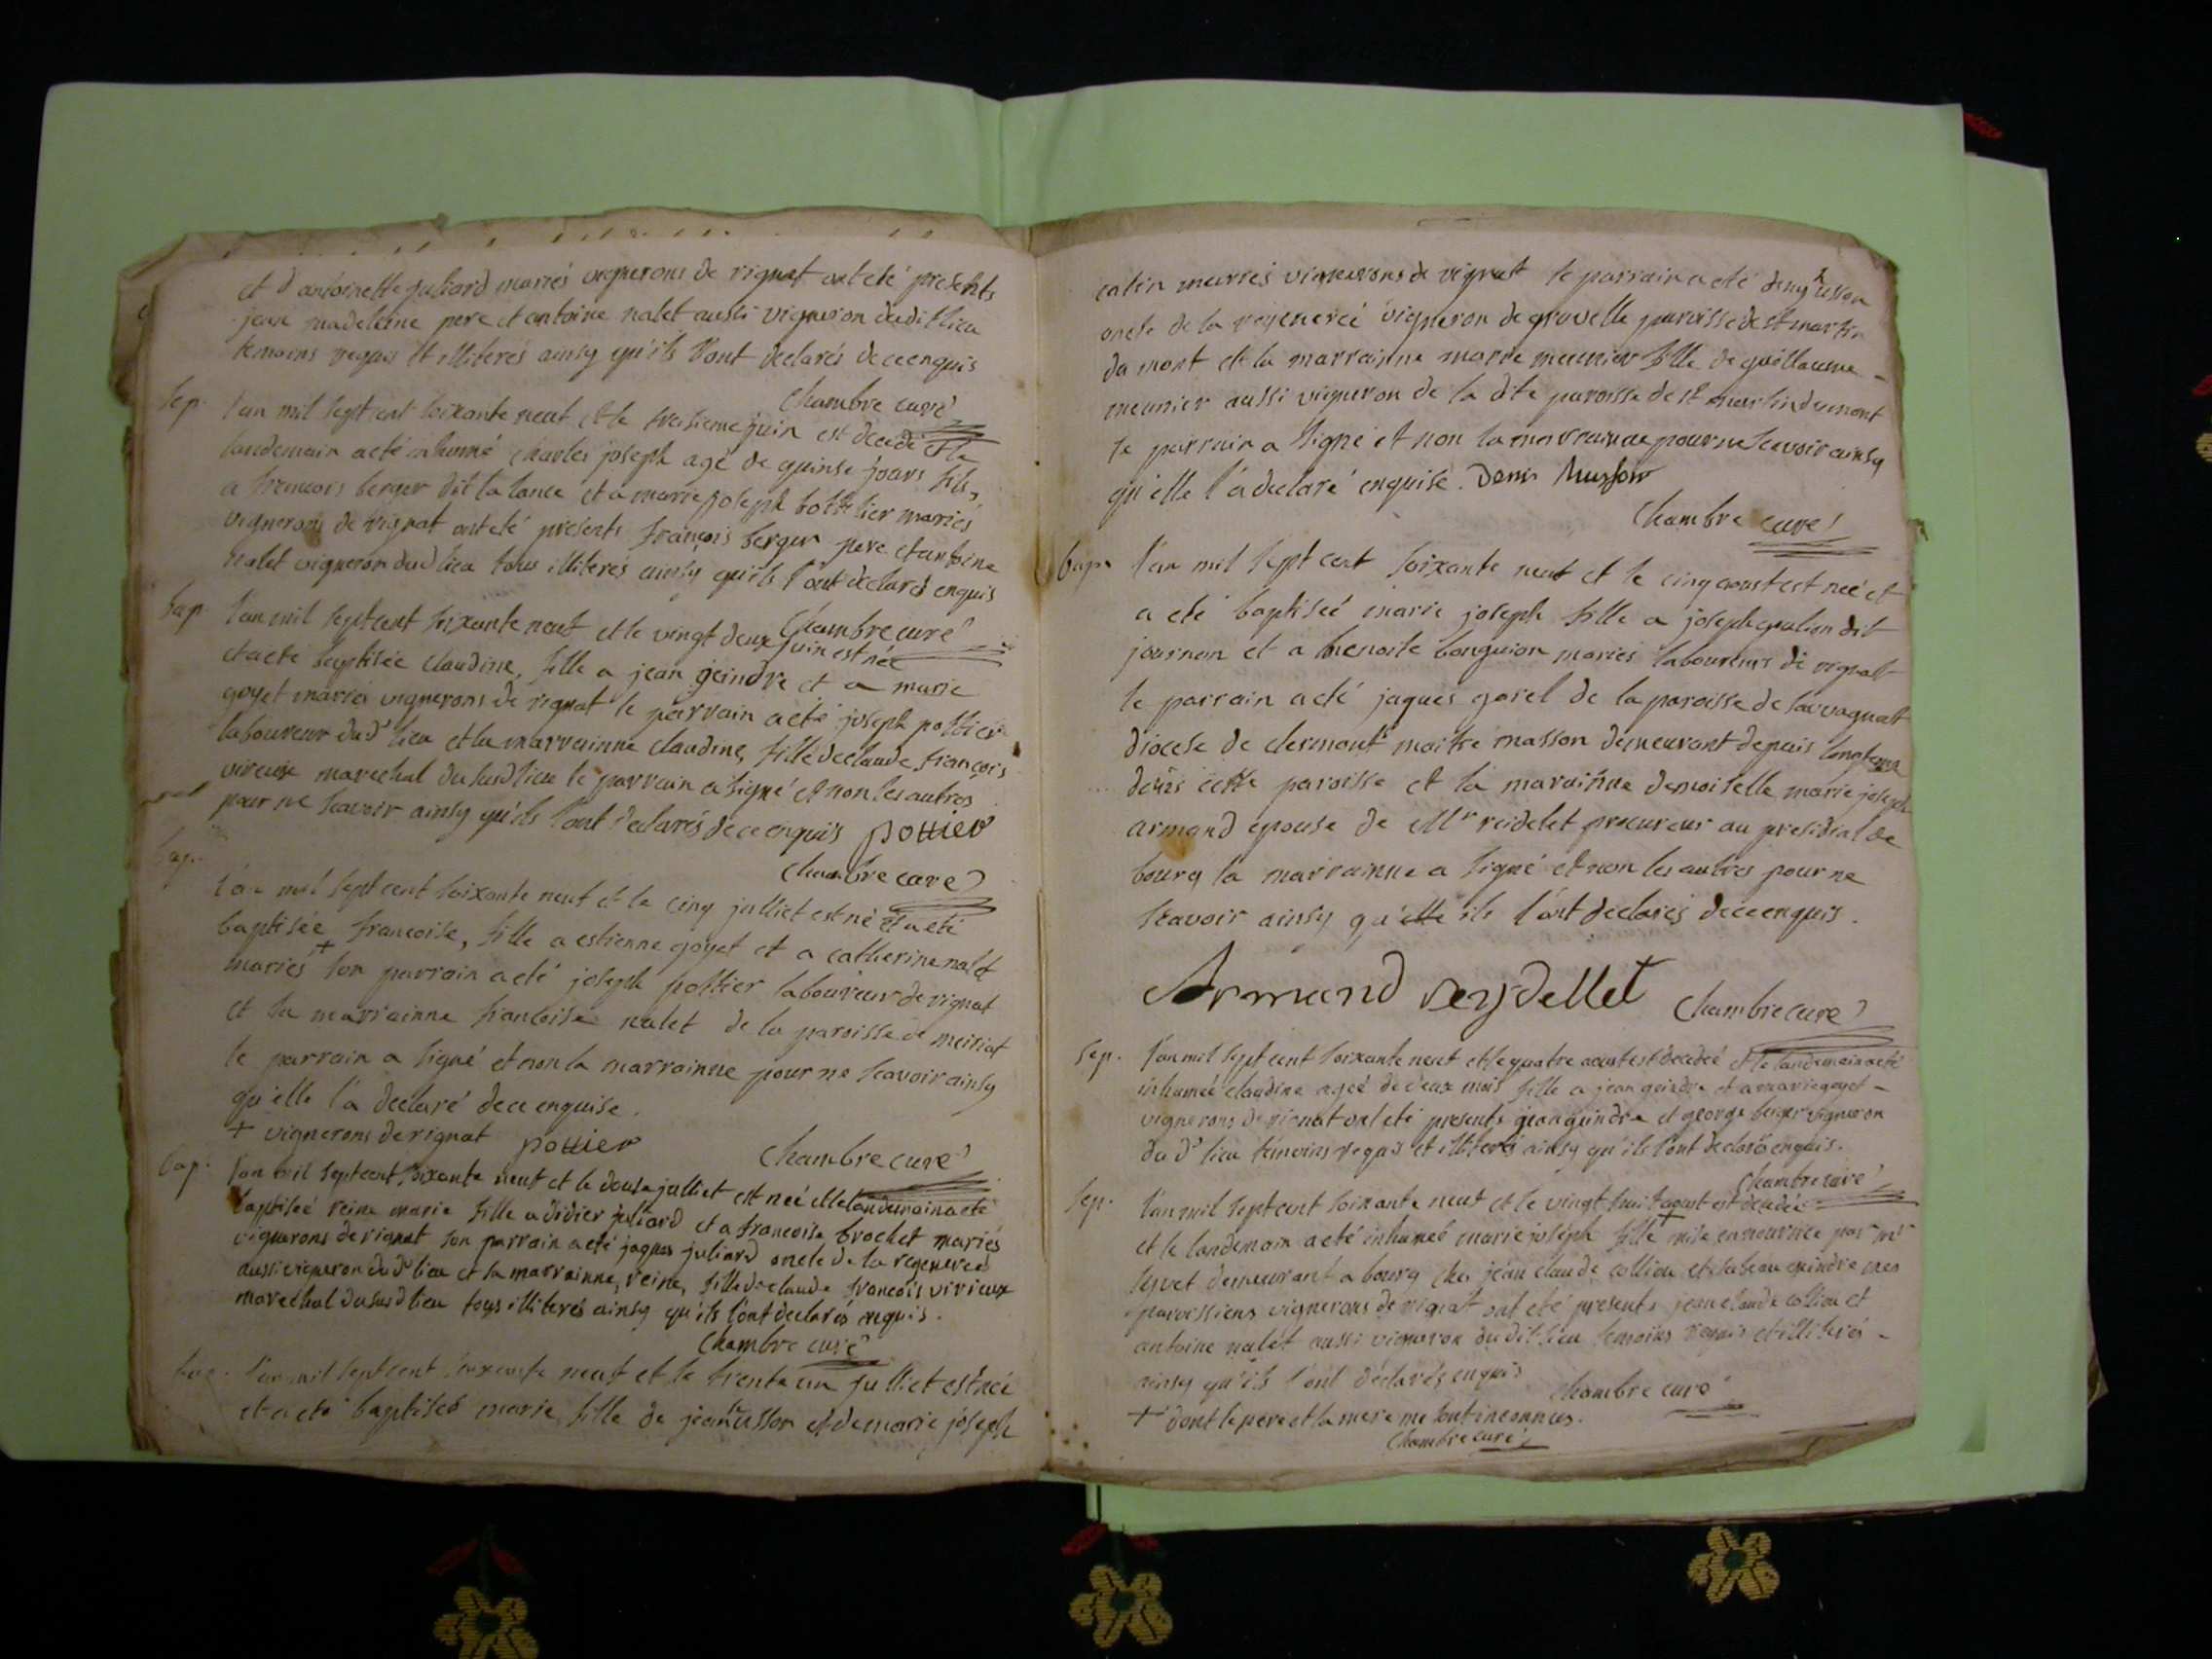 et d'antoinette juliard mariés vignerons de rignat ont eté presents
jean madeleine pere et antoine nalet aussi vigneron dudit lieu
temoins requis et illiterés ainsy qu'ils l'ont declarés de ce enquis
Chambre curé
Sep. l'an mil sept cent soixante neuf et le treisieme juin est decedé et le
landemain a eté inhumé charles joseph agé de quinse jours fils,
a francois berger dit la lance et a marie joseph bottelier mariés
vignerons de rignat ont eté présents françois berger pere et antoine
nalet vigneron dud lieu tous illiterés ainsy qu'ils l'ont declarés enquis
Chambre curé
bap. l'an mil sept cent soixante neuf et le vingt deux juin est née
et a eté baptisée claudine, fille a jean geindre et a marie
goyet mariés vignerons de rignat le parrain a eté joseph pottier
laboureur dud lieu et la marrainne claudine, fille de claude françois
virieux marechal du susd lieu le parrain a signé et non les autres
pour ne scavoir ainsy qu'ils l'ont declarés de ce enquis pottier
Chambre curé
bap. l'an mil sept cent soixante neuf et le cinq julliet est né et a eté
baptisée francoise, fille a estienne goyet et a catherine nalet
mariés + son parrain a eté joseph pottier laboureur de rignat
et sa marrainne francoise nalet de la paroisse de meiriat
le parrain a signé et non la marrainne pour ne scavoir ainsy
qu'elle l'a declaré de ce enquise.
+ vignerons de rignat pottier Chambre curé
bap. l'an mil sept cent soixante neuf et le douse julliet est neé et le landemain a eté
baptiseé reine marie fille a didier juliard et a francoise brochet mariés
vignerons de rignat son parrain a eté jaques juliard oncle de la regenereé
aussi vigneron dud lieu et sa marrainne, reine, fille de claude francois virieux
marechal du susd lieu tous illiterés ainsy qu'ils l'ont declarés enquis.
Chambre curé
bap. l'an mil sept cent soixante neuf et le trente un julliet est neé
et a eté baptiseé marie fille de jean husson et de marie joseph
catin mariés vignerons de rignat le parrain a eté deny husson
oncle de la regenereé vigneron de gravelle paroisse de st martin
du mont et la marrainne marie meunier fille de guillaume
meunier aussi vigneron de la dite paroisse de st martin du mont
le parrain a signé et non la marrainne pour ne scavoir ainsy
qu'elle l'a declaré enquise. Denis husson
Chambre curé
bap. l'an mil sept cent soixante neuf et le cinq aoust est neé et
a eté baptiseé marie joseph fille a joseph dit
journon et a benoite bonguion mariés laboureurs de rignat
le parrain a eté jaques gorel de la paroisse de
diocese de clermont maitre masson demeurant depuis longtems
dans cette paroisse et la marainne demoiselle marie joseph
armand epouse de Mr reidelet procureur au presidial de
bourg la marrainne a signé et non les autres pour ne
scavoir ainsy qu'elle ils l'ont declarés de ce enquis.
Armand reydellet Chambre curé
Sep. l'an mil sept cent soixante neuf et le quatre aoust est decedeé et le landemain a eté
inhumeé claudine ageé de deux mois fille a jean geindre et a marie goyet
vignerons de rignat ont eté presents jean geindre et george berger vigneron
du d lieu temoins requis et illiterés ainsy qu'ils l'ont declarés enquis.
Chambre curé
Sep. l'an mil sept cent soixante neuf et le vingt huit aoust est decedeé
et le landemain a eté inhumeé marie joseph fille + mise en nourrice par mr
demeurant a bourg ches jean claude colliou et geindre mes
paroissiens vignerons de rignat ont eté presents jean claude colliou et
antoine nalet aussi vigneron dudit lieu temoins requis et illiterés
ainsy qu'ils l'ont déclarés enquis Chambre curé
+ dont le pere et la mere me sont inconnus.
Chambre curé